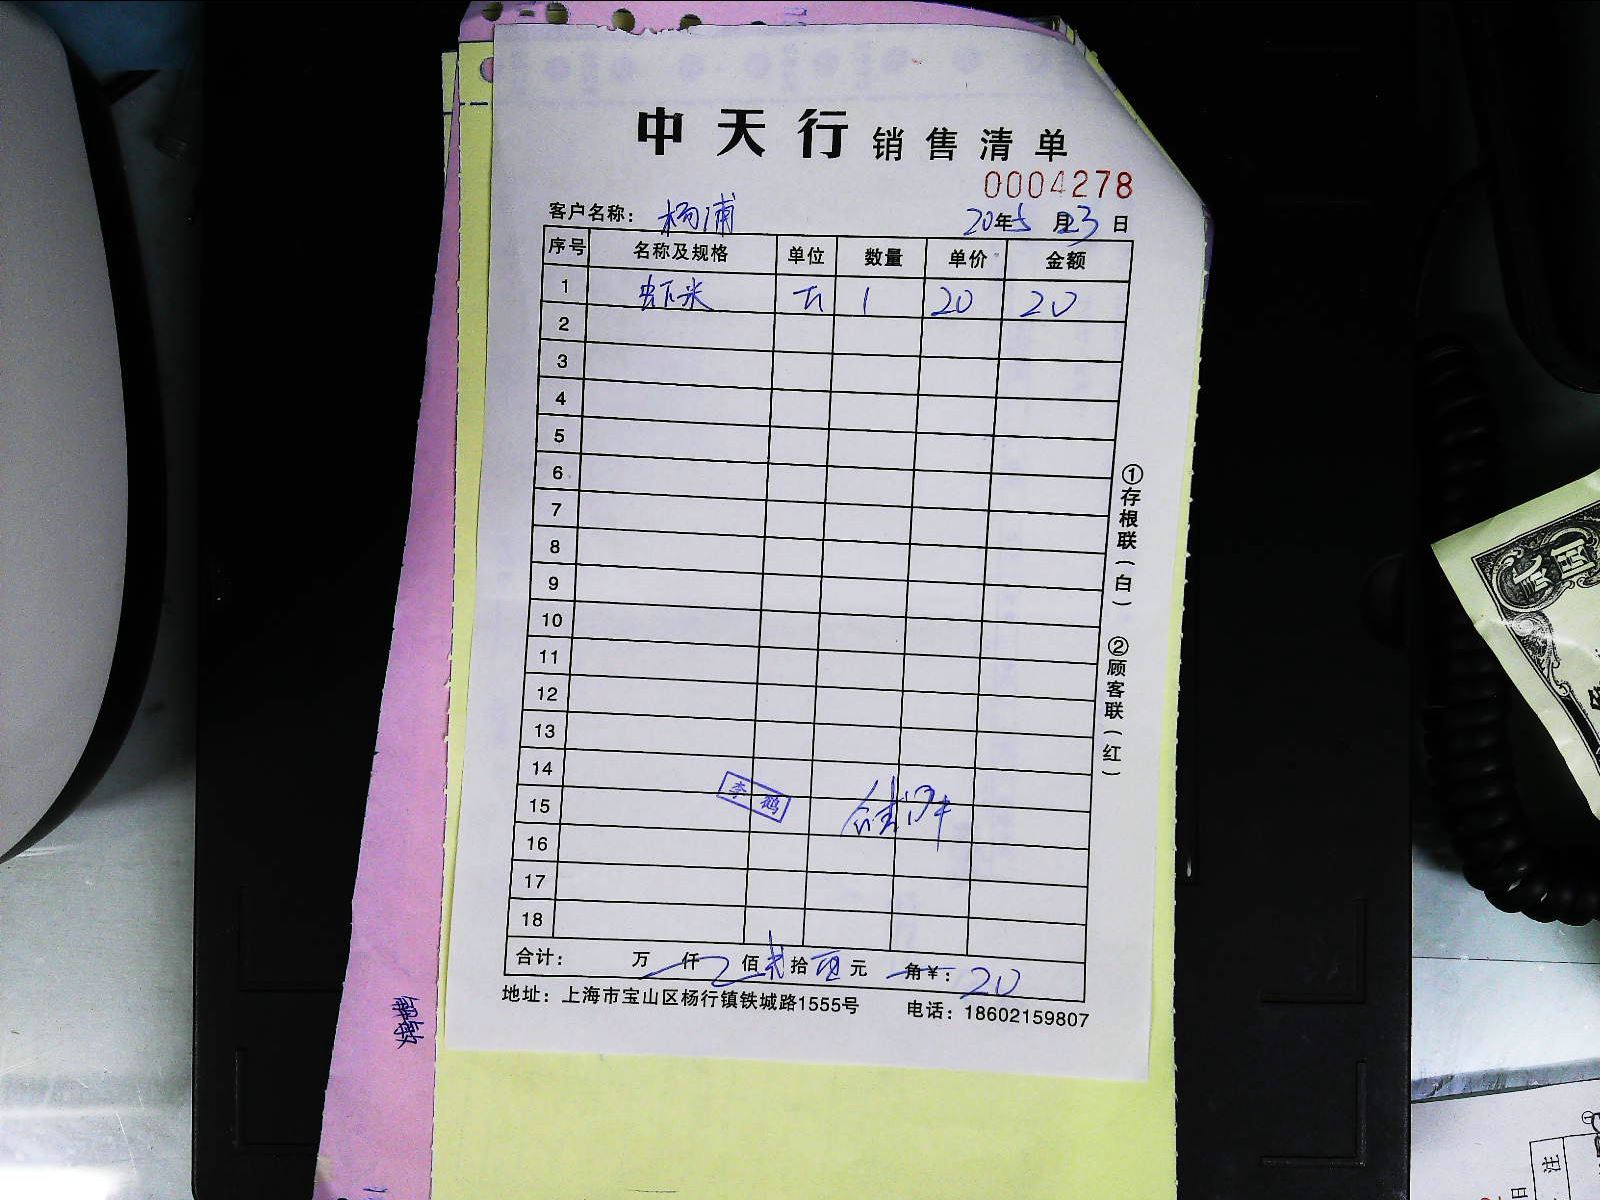 中天行 销售清单
0004278
客户名称: 杨浦 20年5月23日
序号 名称及规格 单位 数量 单价 金额
1 虾米 斤 1 20 20
2
3
4
5
6
7
8
9
10
11
12
13
14
李鹤
15
16
17
18
合计: 万 仟 佰 贰 拾 元 角 ¥: 20
地址: 上海市宝山区杨行镇铁城路1555号 电话: 18602159807
①存根联(白) ②顾客联(红)
贰圆
注
日